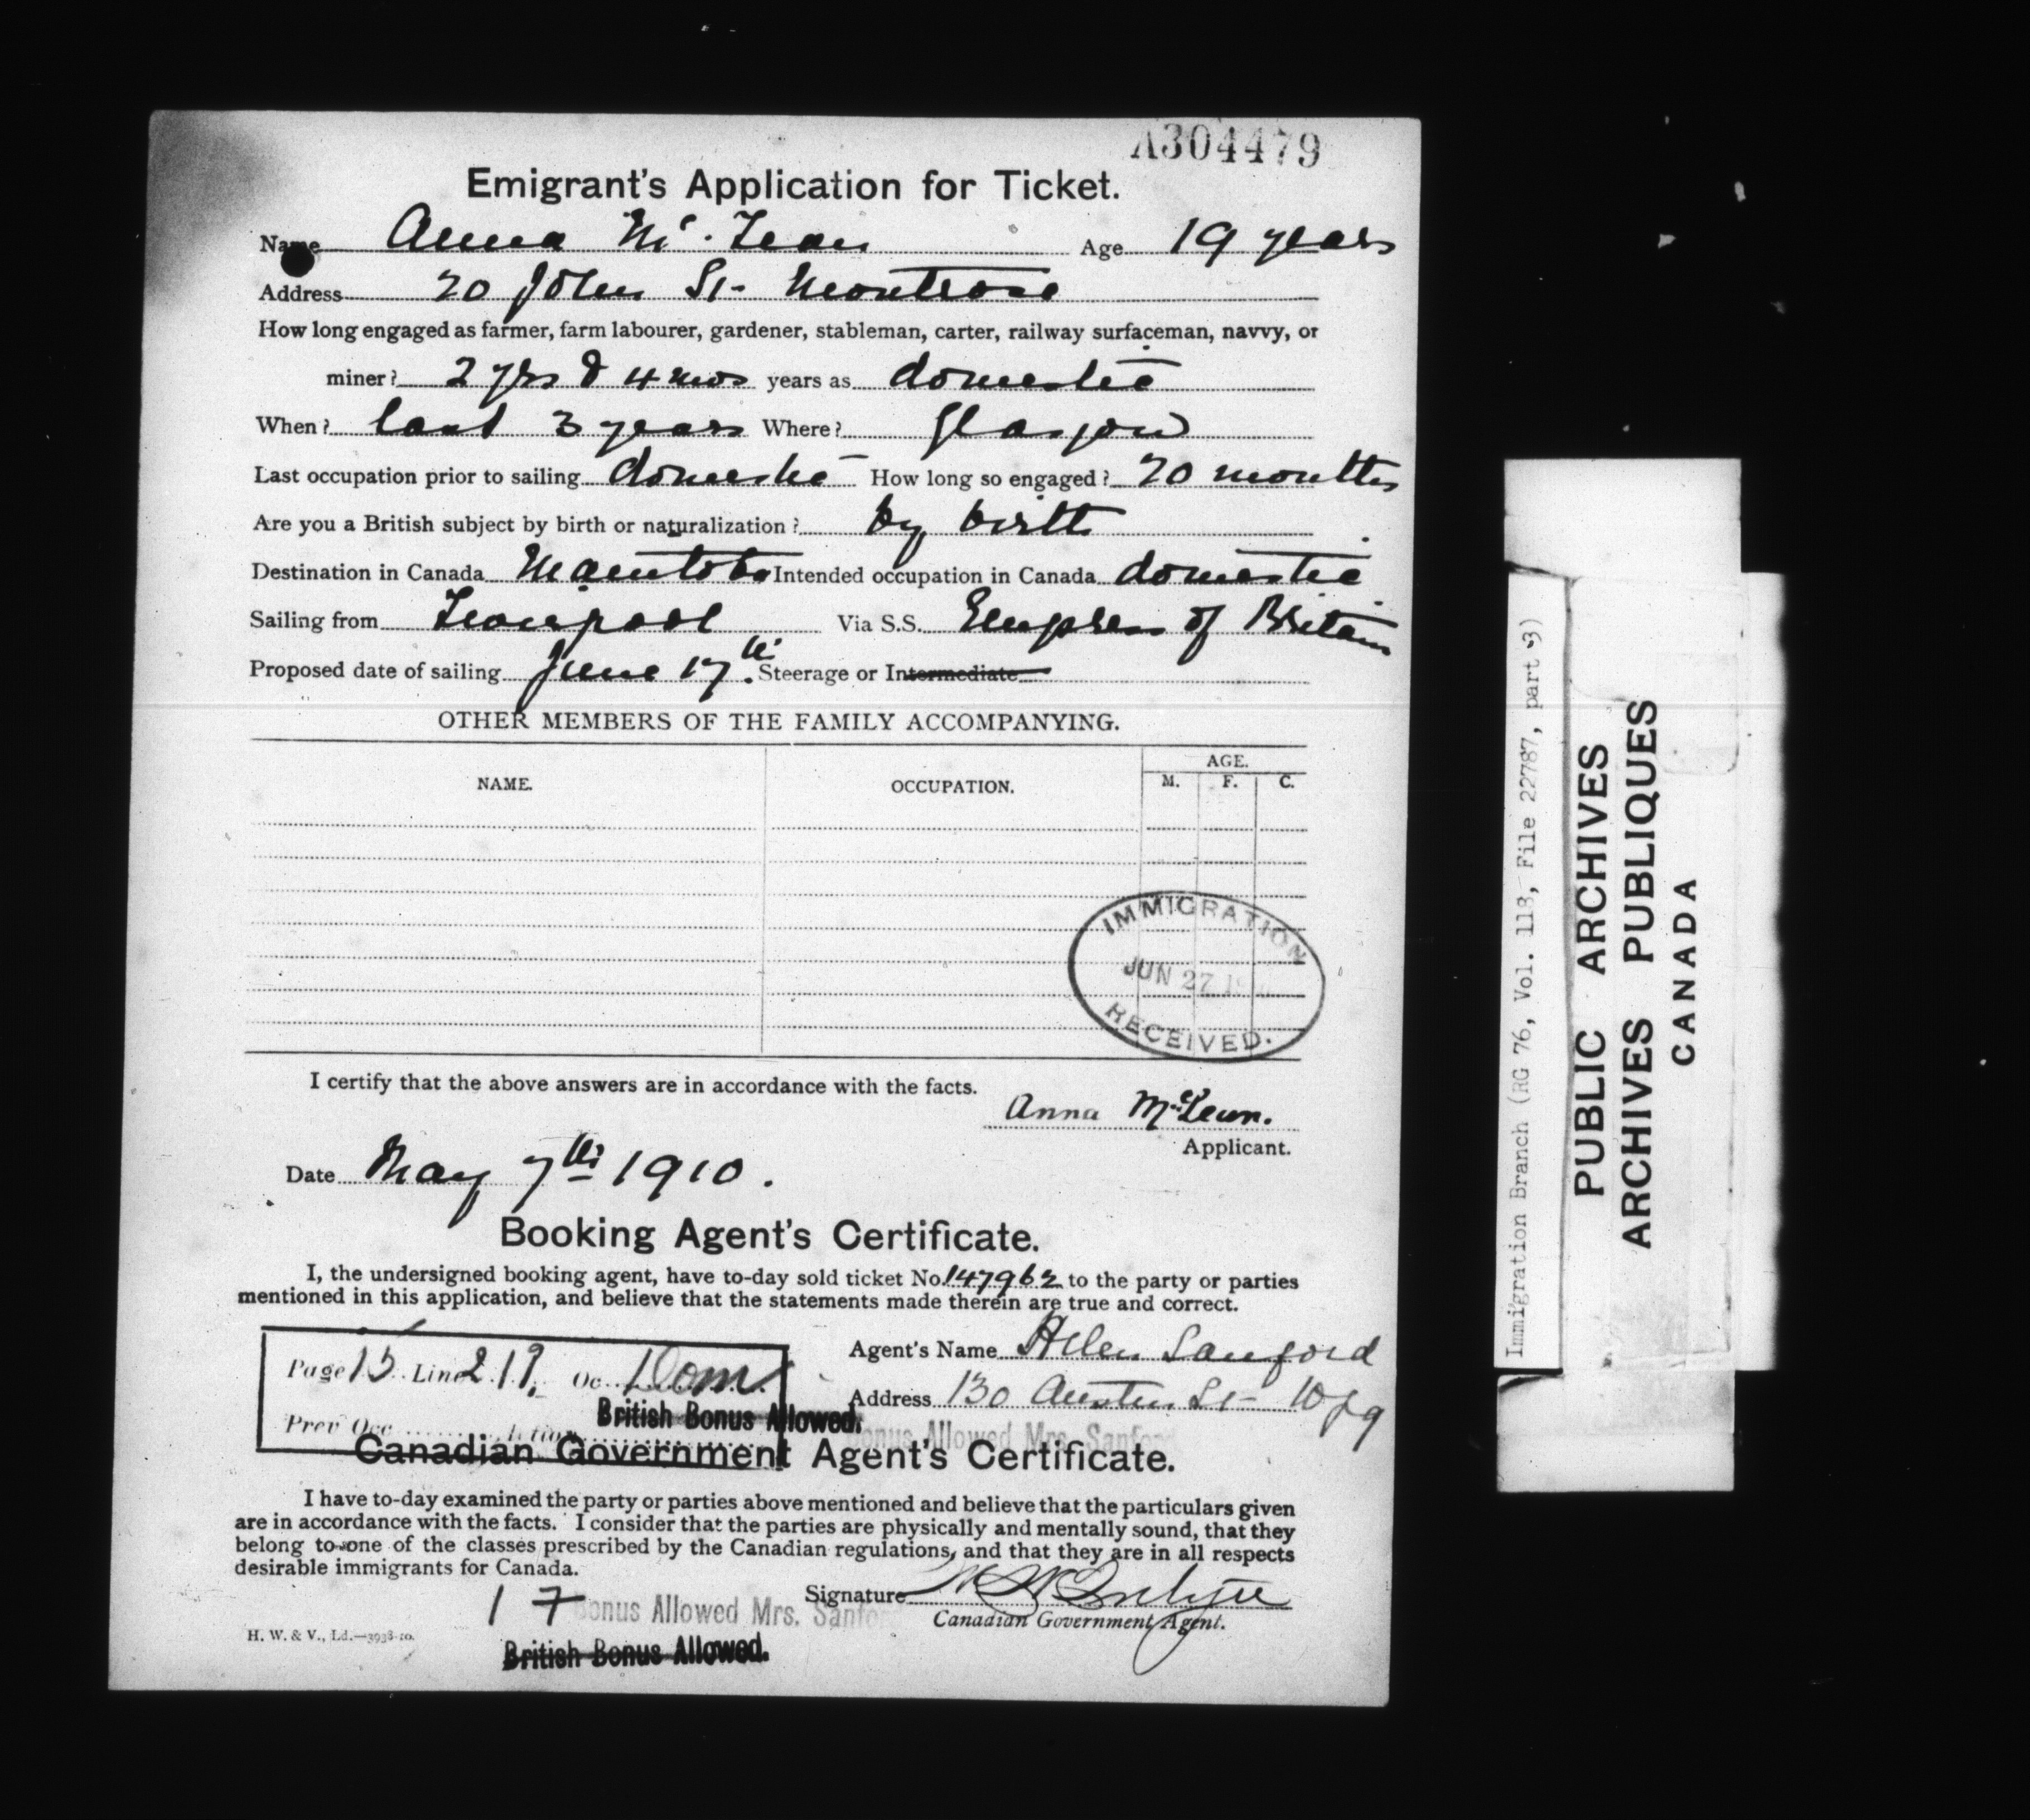 A304479
Emigrant's Application for Ticket.
Name Anna Mc. Lean Age 19 years
Address 20 John St- Montrose
How long engaged as farmer, farm labourer, gardener, stableman, carter, railway surfaceman, navvy, or
miner? 2 yrs & 4 mos years as domestic
When? last 3 years Where? Glasgow
Last occupation prior to sailing domestic How long so engaged? 20 months
Are you a British subject by birth or naturalization? by birth
Destination in Canada Manitoba Intended occupation in Canada domestic
Sailing from Liverpool Via S.S. Empress of Britain
Proposed date of sailing June 17th. Steerage or Intermediate
OTHER MEMBERS OF THE FAMILY ACCOMPANYING.
NAME. OCCUPATION. AGE.
M. F. C.
IMMIGRATION
JUN 27
RECEIVED.
I certify that the above answers are in accordance with the facts.
Anna McLean.
Applicant.
Date May 7th 1910.
Booking Agent's Certificate.
I, the undersigned booking agent, have to-day sold ticket No 147962 to the party or parties
mentioned in this application, and believe that the statements made therein are true and correct.
Agent's Name Helen Sanford
Page 15 Line 219. Oc. Dom.
Address 130 Austin St- Wpg
British Bonus Allowed.
Prev Occ Action
Bonus Allowed Mrs. Sanford
Canadian Government Agent's Certificate.
I have to-day examined the party or parties above mentioned and believe that the particulars given
are in accordance with the facts. I consider that the parties are physically and mentally sound, that they
belong to one of the classes prescribed by the Canadian regulations, and that they are in all respects
desirable immigrants for Canada.
Signature
17
Bonus Allowed Mrs. Sanfo
Canadian Government Agent.
H. W. & V., Ld.—3938-10.
British Bonus Allowed.
Immigration Branch (RG 76, Vol. 118, File 22787, part 3)
PUBLIC ARCHIVES
ARCHIVES PUBLIQUES
CANADA